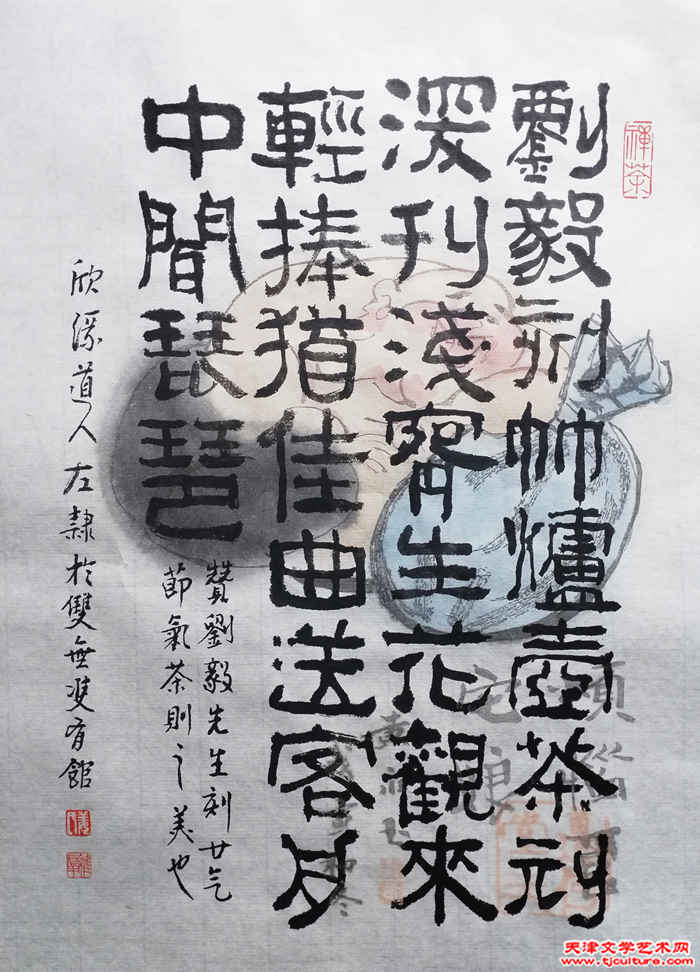 禪茶
劉毅刻竹爐壺茶刻
深刊淺生花觀來
輕捧猶佳曲送客舟
中間琵琶
贊劉毅先生刻廿气
節氣茶則之美也
欣道人左隸於雙無雙有館
天津文学艺术网
www.tjculture.com